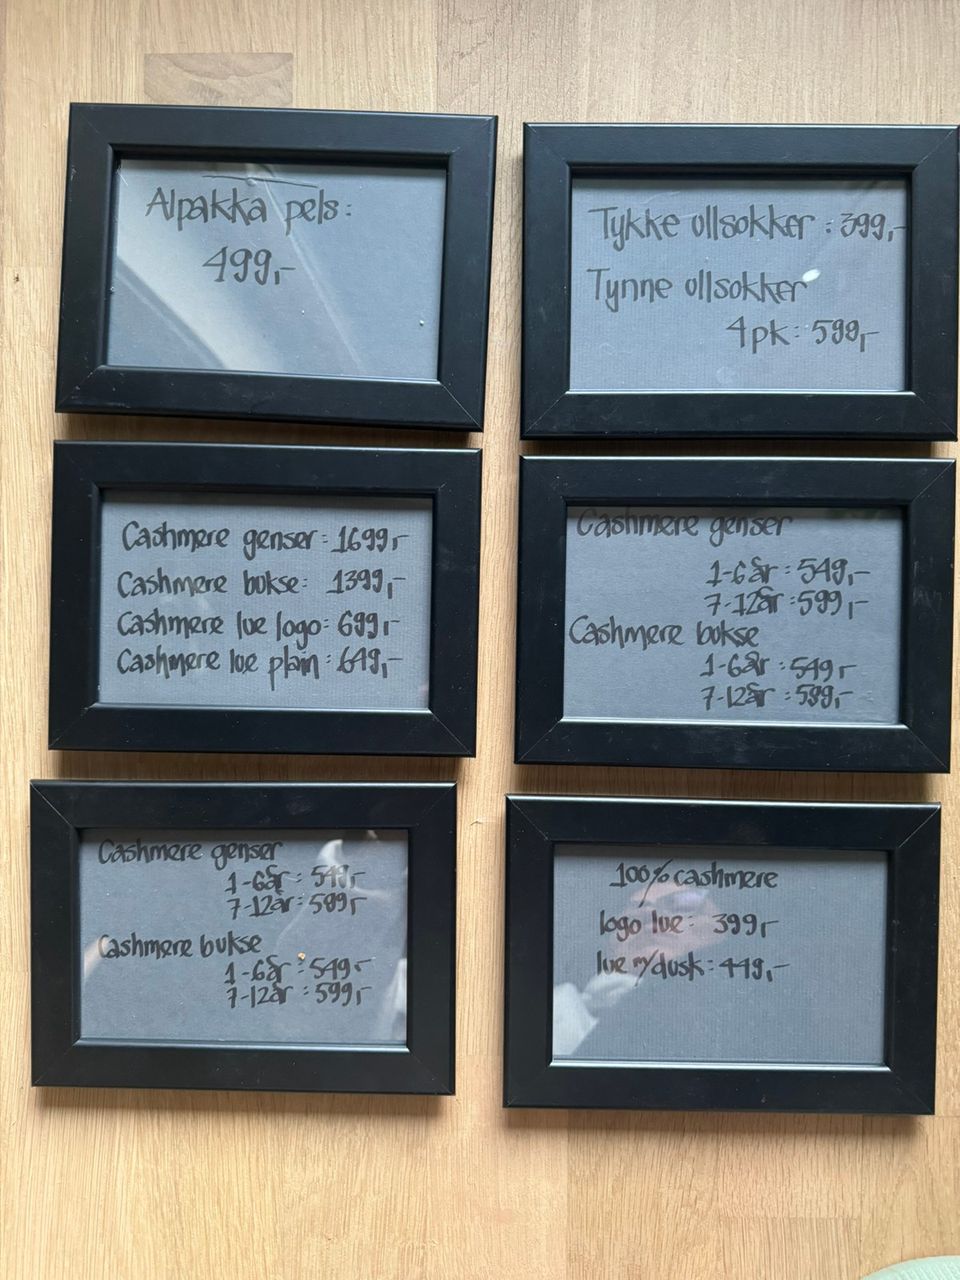 Alpakka pels:
499,-
Tykke ullsokker : 399,-
Tynne ullsokker
4pk: 599,-
Cashmere genser: 1699,-
Cashmere bukse: 1399,-
Cashmere lue logo: 699,-
Cashmere lue plain: 649,-
Cashmere genser
1-6år : 549,-
7-12år : 599,-
Cashmere bukse
1-6år : 549,-
7-12år : 599,-
Cashmere genser
1-6år : 549,-
7-12år : 599,-
Cashmere bukse
1-6år : 549,-
7-12år : 599,-
100% cashmere
logo lue: 399,-
lue m/dusk: 449,-